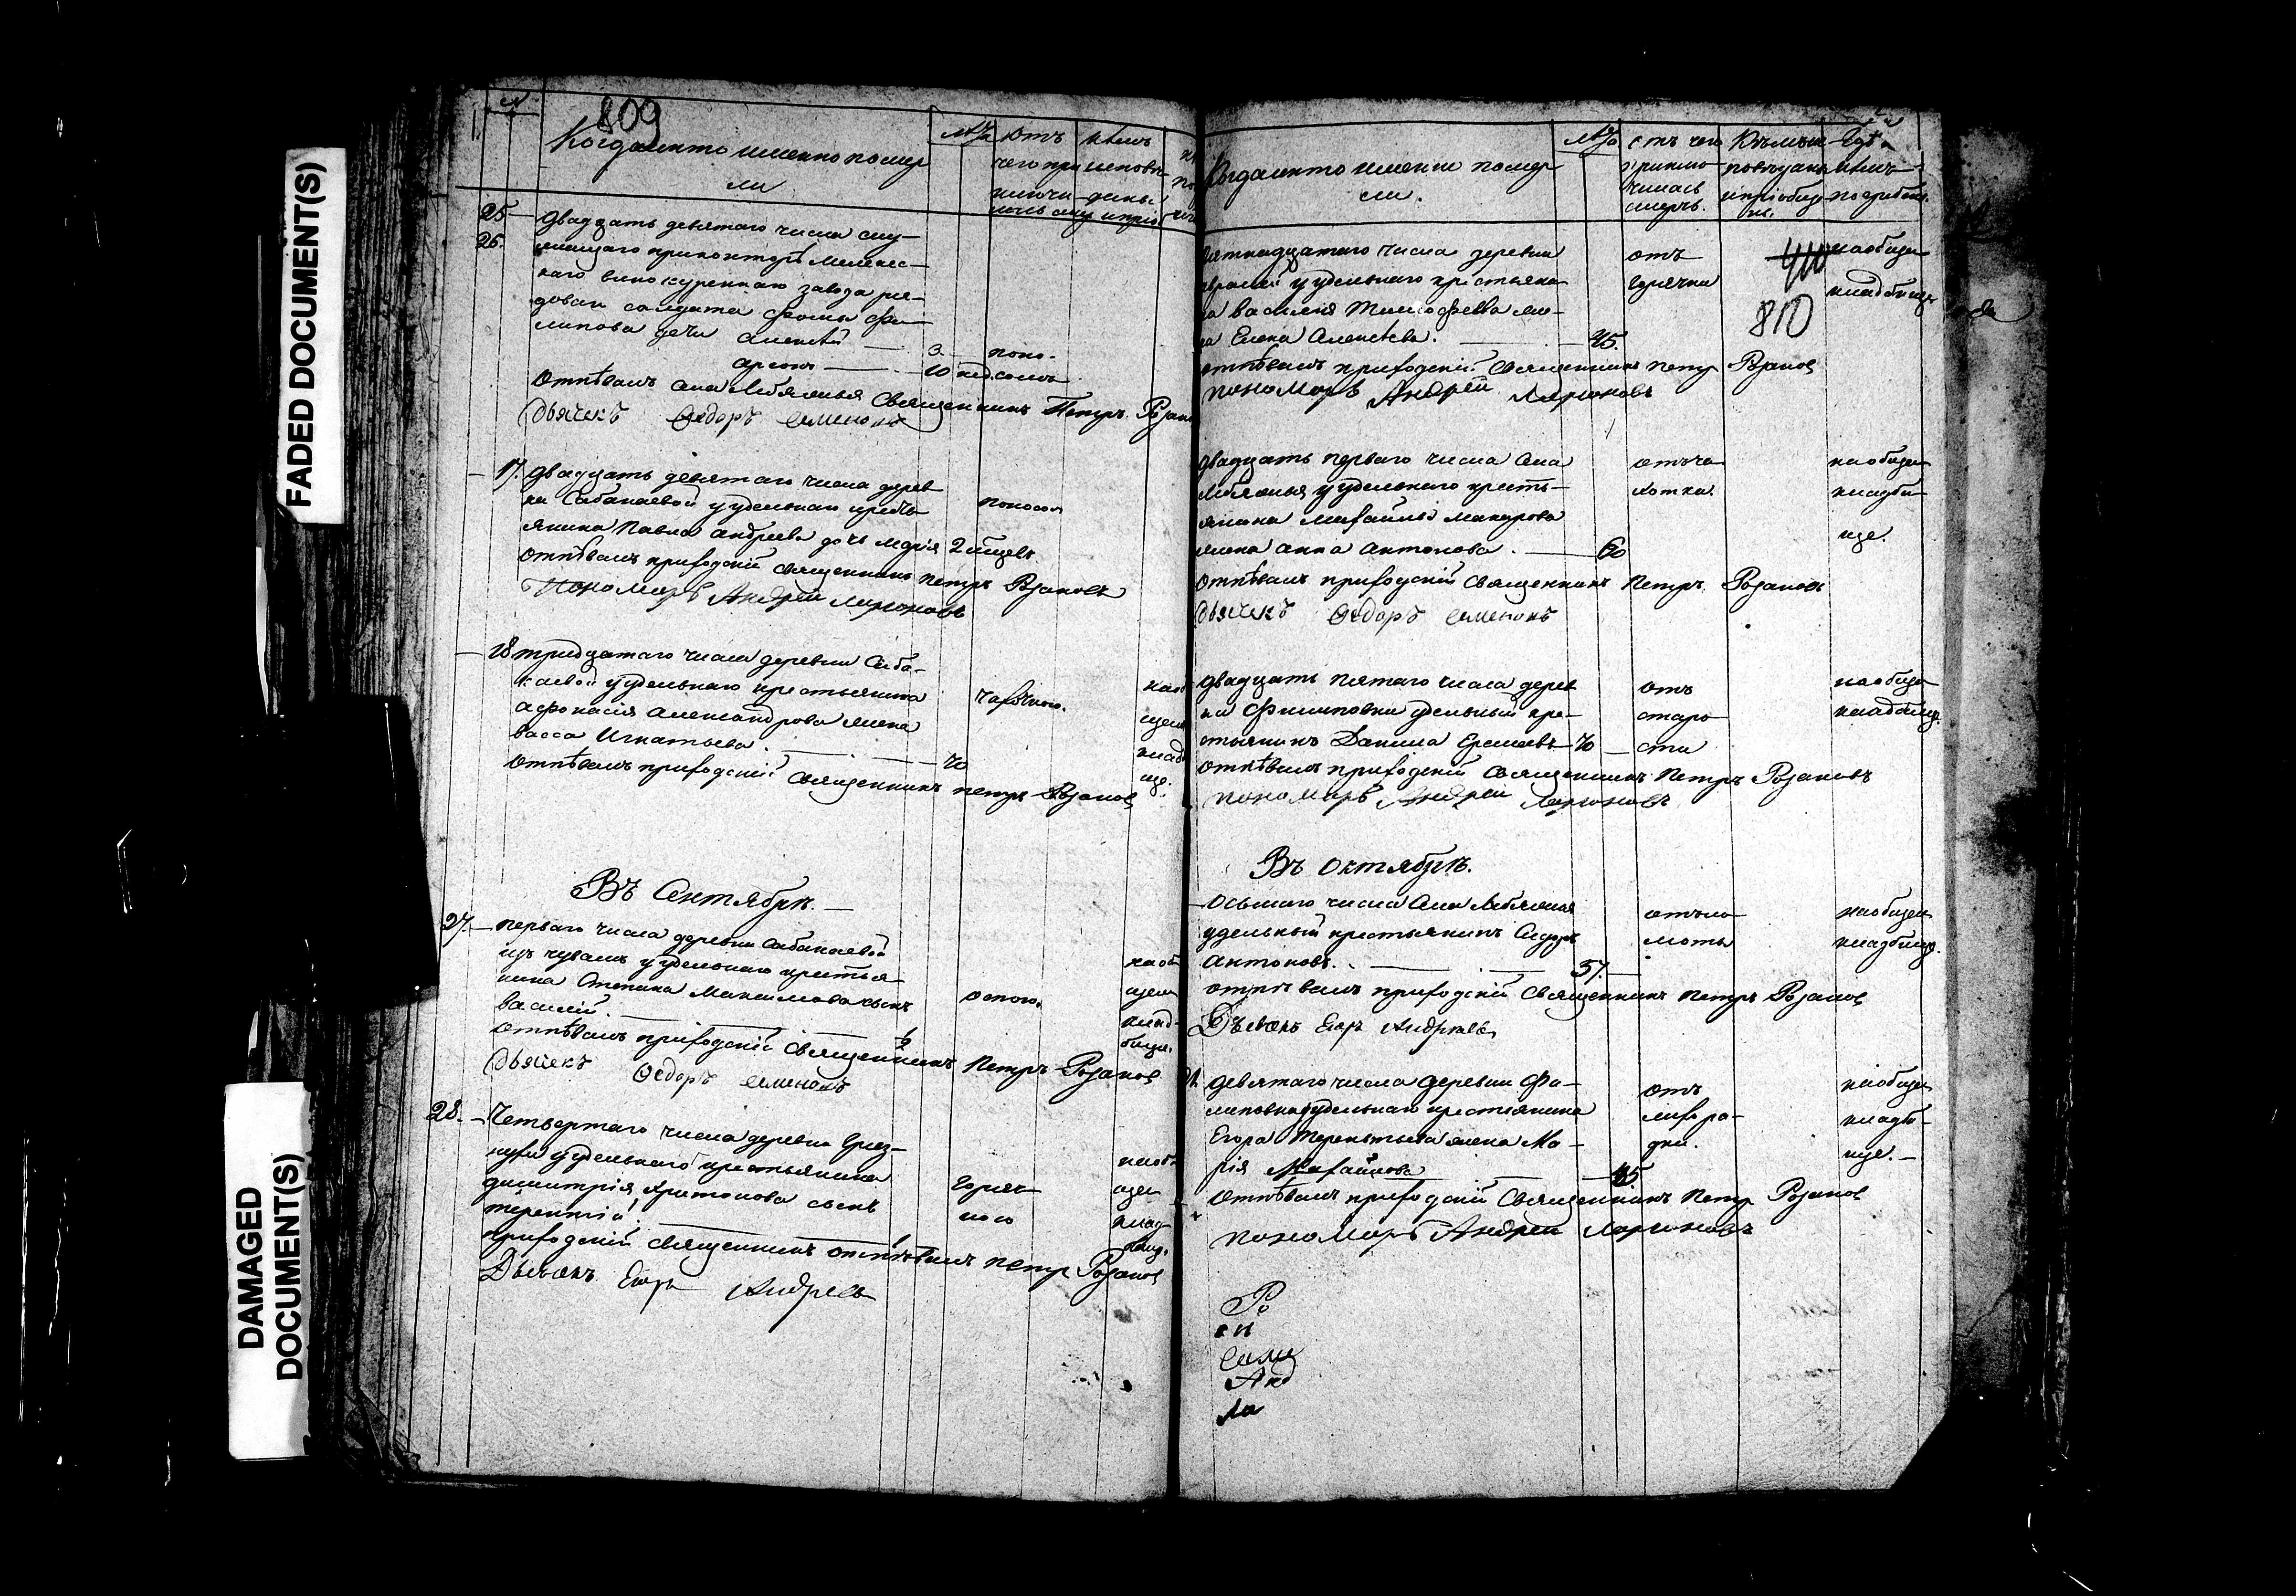 FADED DOCUMENT(S)
DAMAGED
DOCUMENT(S)
809
Когда и кто именно помер
ли
отъ
чего при
25
26.
двадцать девятаго числа слу
жащаго при конторѣ Мелекес
каго винокуреннаго завода ря
доваго солдата Фомы Фи
липова дети Алексѣй 3.
арсенъ 10 нед.
поно
сомъ
Отпѣвалъ села Лебяжья Священникъ Петръ Розановъ
Дьячекъ Ѳедоръ Семеновъ
17. двадцать девятаго числа дерев
ни Сабакаевой у удельнаго кресть
янина Павла Андреева дочь Марія 2 месяцевъ
поносом
Отпѣвалъ приходскій Священникъ Петръ Розановъ
Пономарь Андрей Ларионовъ
18 тридцатаго числа деревни Саба
каевой у удельнаго крестьянина
Афонасія Александрова жена
Васса Игнатьева. 70
чахоткою.
Отпѣвалъ приходскій Священникъ Петръ Розановъ
Въ Сентябрѣ.
27. перваго числа деревни Сабакаевой
изъ чувашъ у удельнаго крестья
нина Степана Максимова сынъ
Василій.
оспою.
Отпѣвалъ приходскій Священникъ Петръ Розановъ
Дьячекъ Ѳедоръ Семеновъ
28. Четвертаго числа деревни
у удельнаго крестьянина
Димитрія Харитонова сынъ
Терентій.
горяч
кою
приходскій Священникъ отпѣвалъ Петръ Розановъ
Дьячокъ Егоръ Андреевъ
Когда и кто именно помер
ли.
отъ чего
приклю
чилась
смерть.
Кѣмъ ис
поведаны
и пріобще
ны.
Гдѣ и
кѣмъ
погребены.
410
810
пятнадцатаго числа деревни
у удельнаго крестьяни
на Василія Тимофеева же
на Елена Алексѣева. 45.
отъ
горячки
на общем
кладбище
отпѣвалъ приходскій Священникъ Петръ Розановъ
пономарь Андрей Ларионовъ
двадцать перваго числа села
Лебяжья у удельнаго кресть
янина Михайлы Макарова
жена Анна Антонова. 60
отъ ча
хотки
на общем
кладби
ще.
отпѣвалъ приходскій Священникъ Петръ Розановъ
Дьячекъ Ѳедоръ Семеновъ
двадцать пятаго числа дерев
ни Филиповки удельный кре
стьянинъ Данила Еремеевъ 70
отъ
старо
сти
на общем
кладбище.
отпѣвалъ приходскій Священникъ Петръ Розановъ
пономарь Андрей Ларионовъ
Въ Октябрѣ.
Осьмаго числа села Лебяжья
удельный крестьянинъ Сидоръ
Антоновъ. 57.
отъ ло
моты
на общем
кладбище.
отпѣвалъ приходскій Священникъ Петръ Розановъ
Дьячокъ Егоръ Андреевъ
девятаго числа деревни Фи
липовки у удельнаго крестьянина
Егора Терентьева жена Ма
рія Михайлова 45.
отъ
лихора
дки.
на общем
кладби
ще.
Отпѣвалъ приходскій Священникъ Петръ Розановъ
пономарь Андрей Ларионовъ
Ро
сн
Семе
Анд
Ла